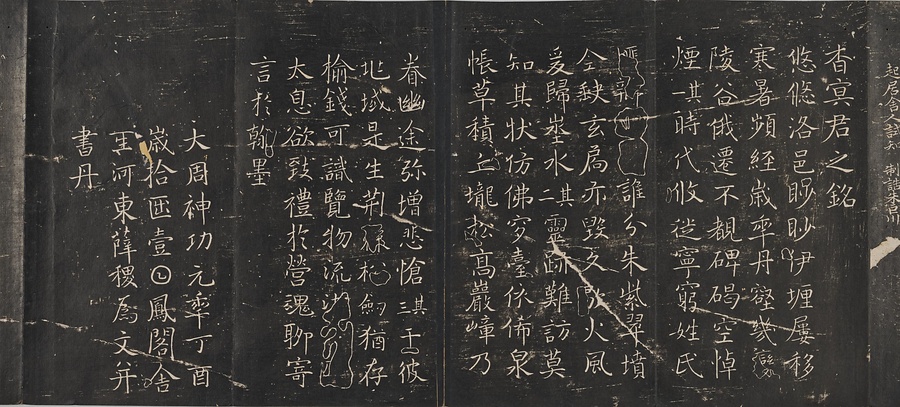 起居舍人試知 制誥
杳冥君之銘
悠悠洛邑眇眇伊壥屢移
寒暑頻經歲𠡦丹壑幾變
陵谷俄遷不覩碑碣空悼
煙一其時代攸徙寧窮姓氏
誰分朱紫翠墳
全缺玄扃亦毀久火風
爰歸埊水二其靈跡難訪莫
知其狀仿佛穸臺依俙泉
帳草積丘壠松高巖嶂乃
眷幽途弥增悲愴三其于彼
兆域是生荊棘松劒猶存
榆錢可識覽物流
太息欲致禮於營魂聊寄
言於翰墨
大周神功元𠡦丁酉
歲拾匝壹囝鳳閣舍
𤯔河東薛稷爲文幷
書丹